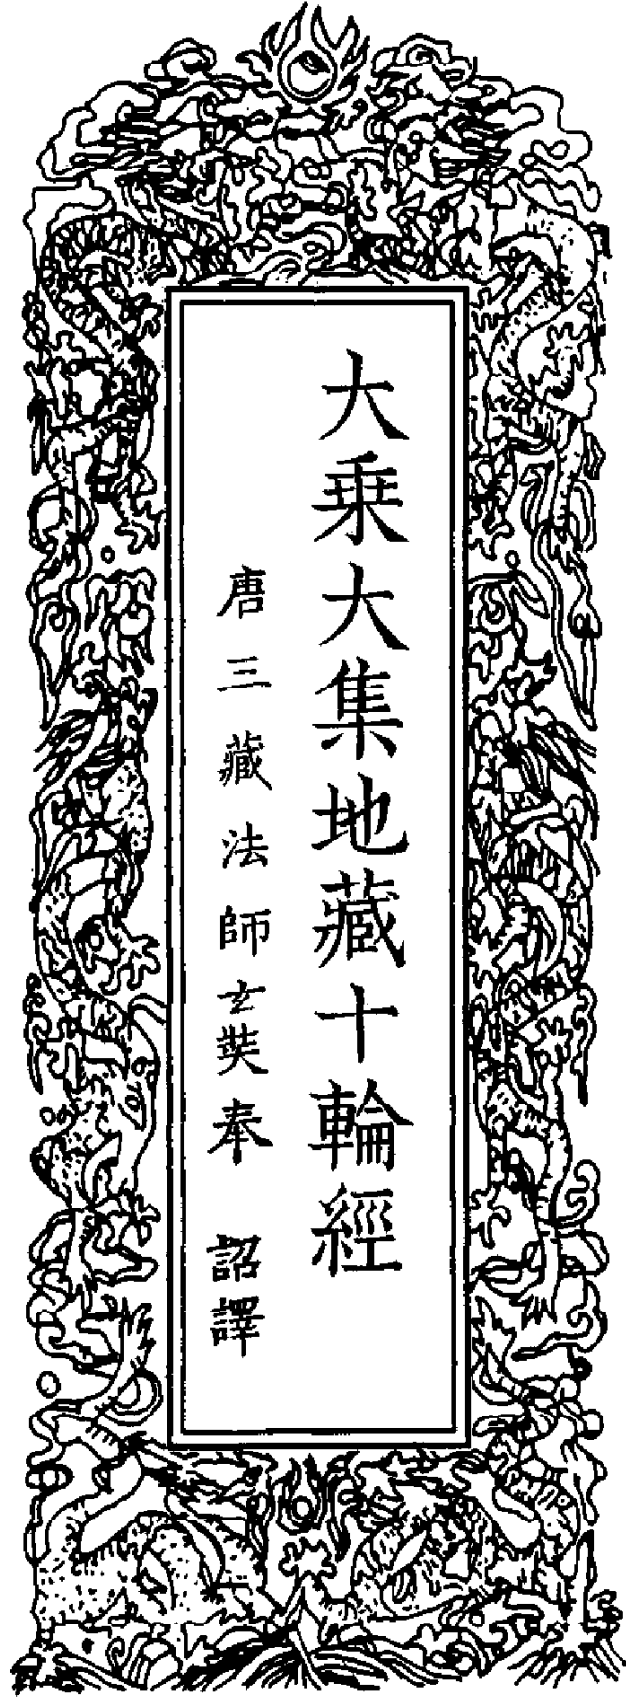 大乗大集地藏十輪經
唐三藏法師玄奘奉　詔譯